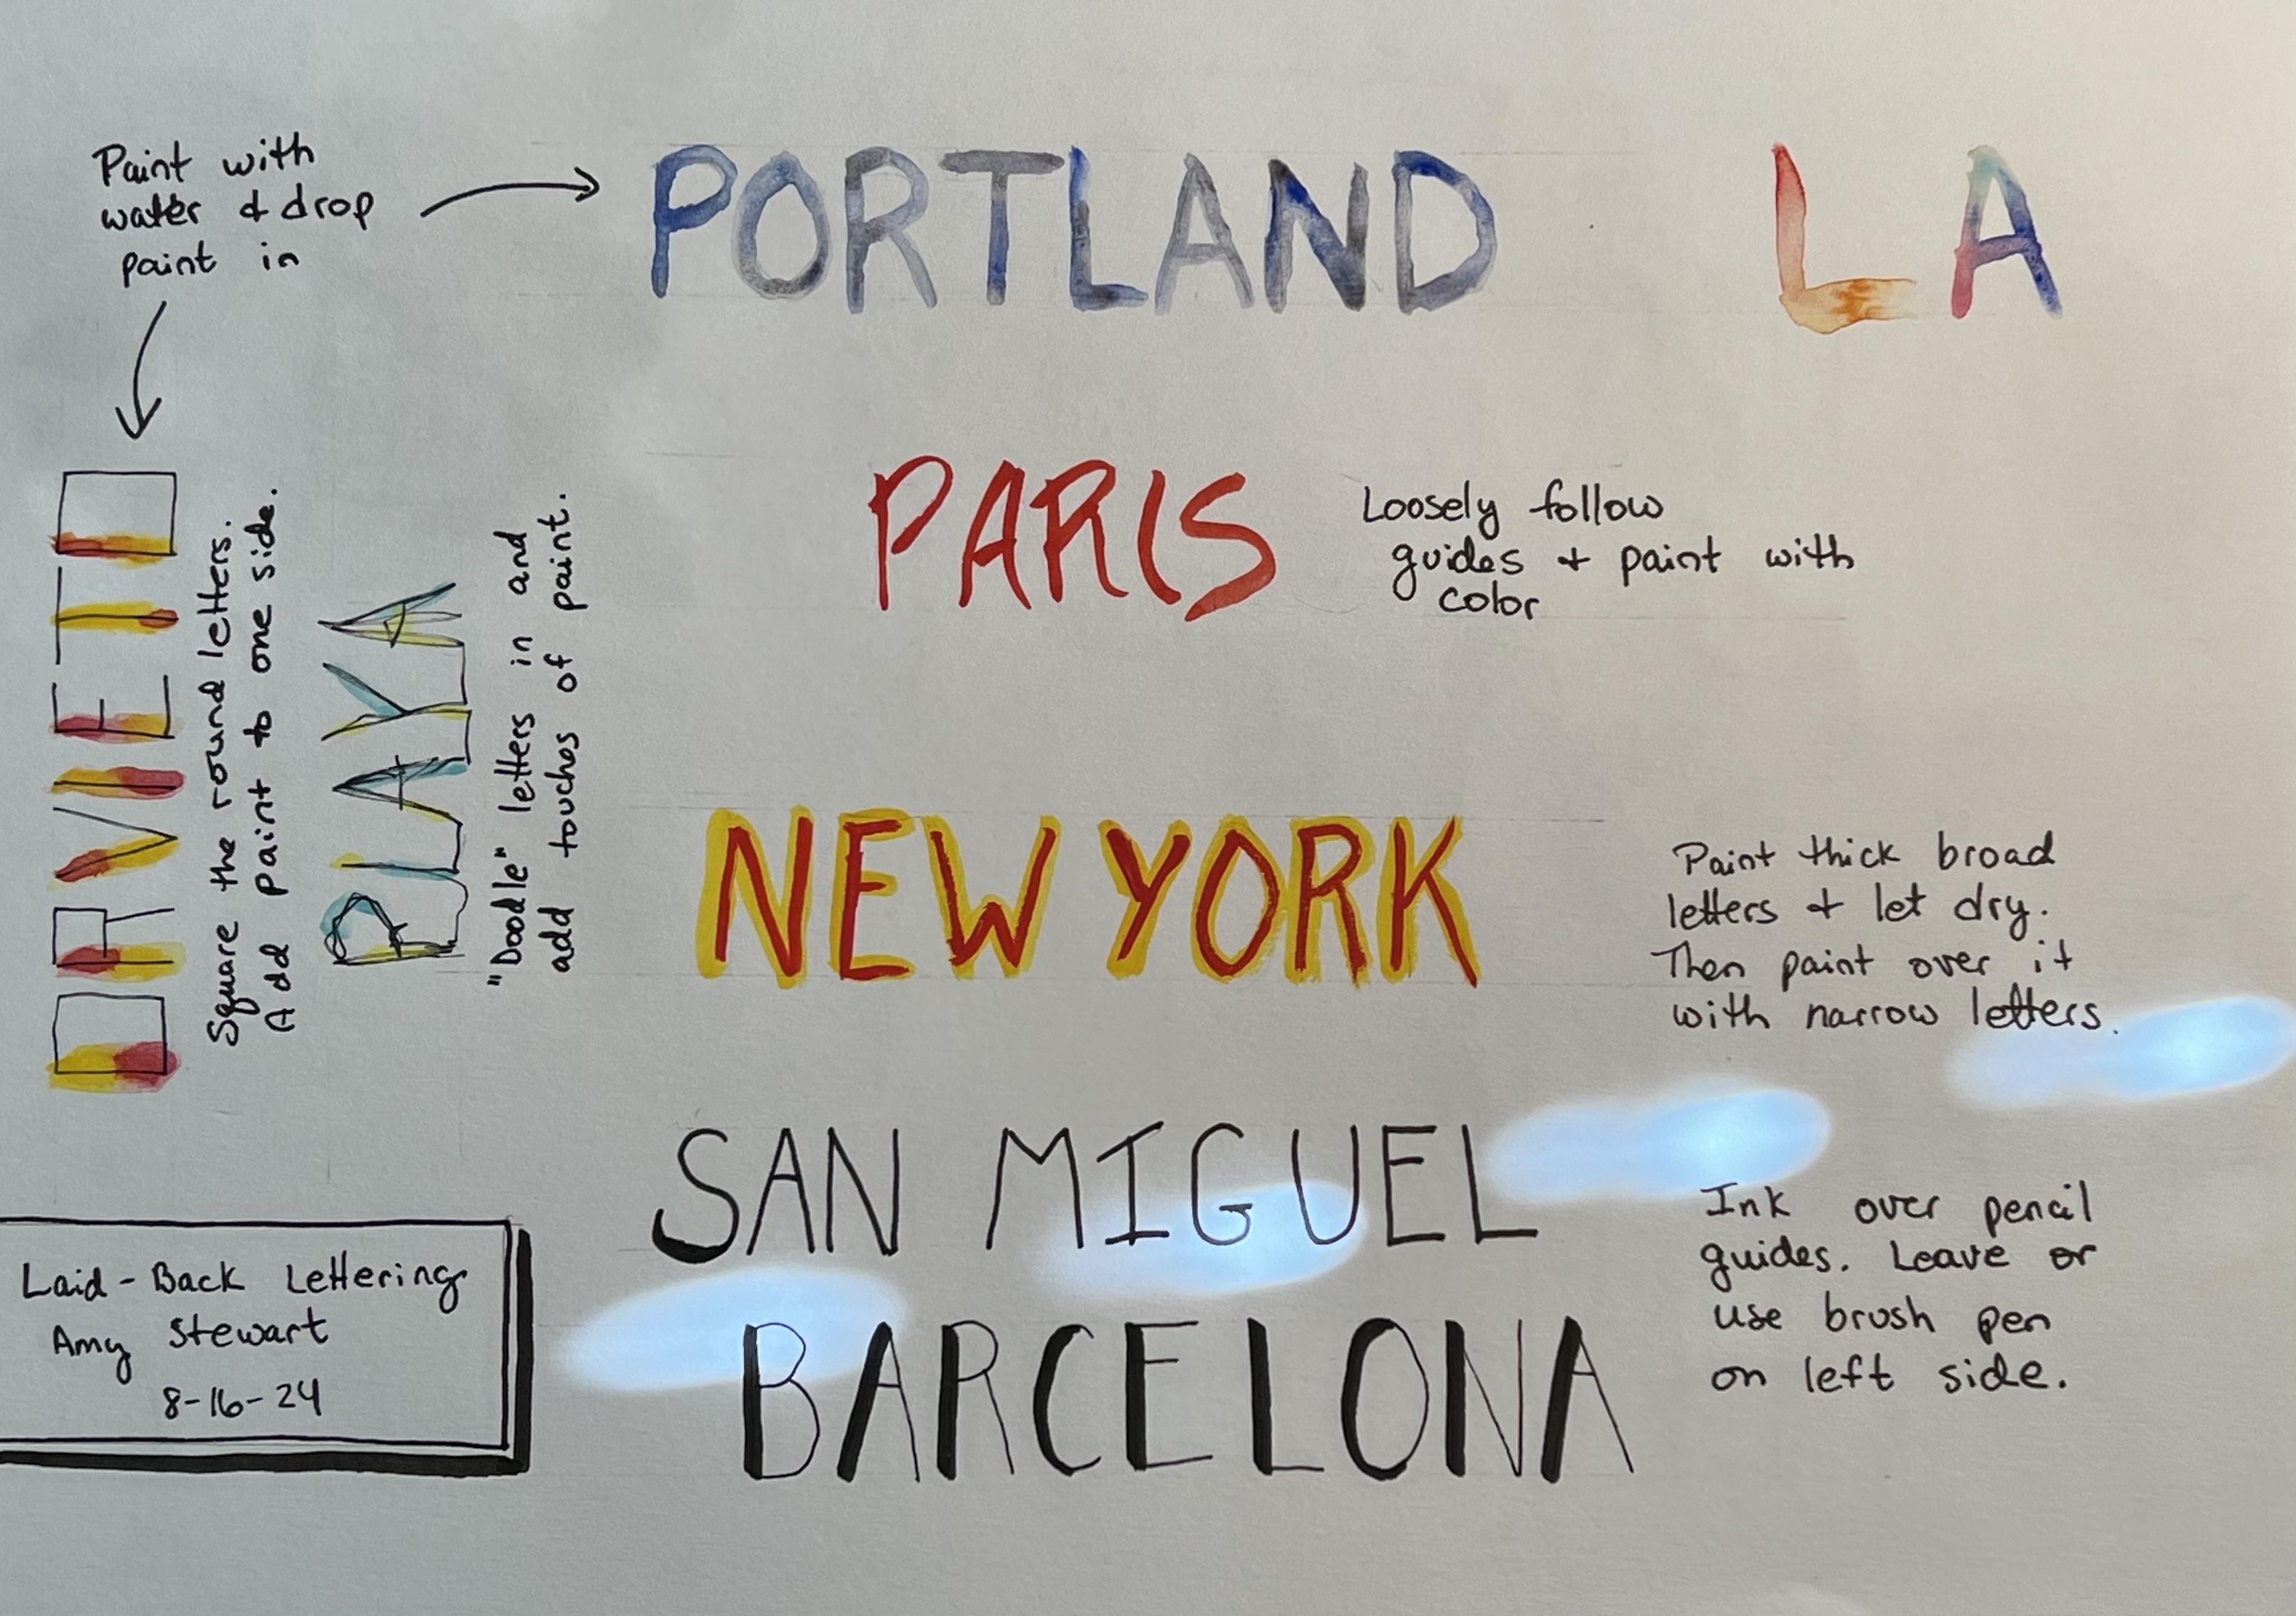 Paint with
water & drop
paint in
PORTLAND LA
PARIS
Loosely follow
guides + paint with
color
ORVIETO
Square the round letters.
Add paint to one side.
PLAYA
"Doodle" letters in and
add touches of paint.
NEW YORK
Paint thick broad
letters + let dry.
Then paint over it
with narrow letters.
SAN MIGUEL
BARCELONA
Ink over pencil
guides. Leave or
use brush pen
on left side.
Laid-Back Lettering
Amy Stewart
8-16-24